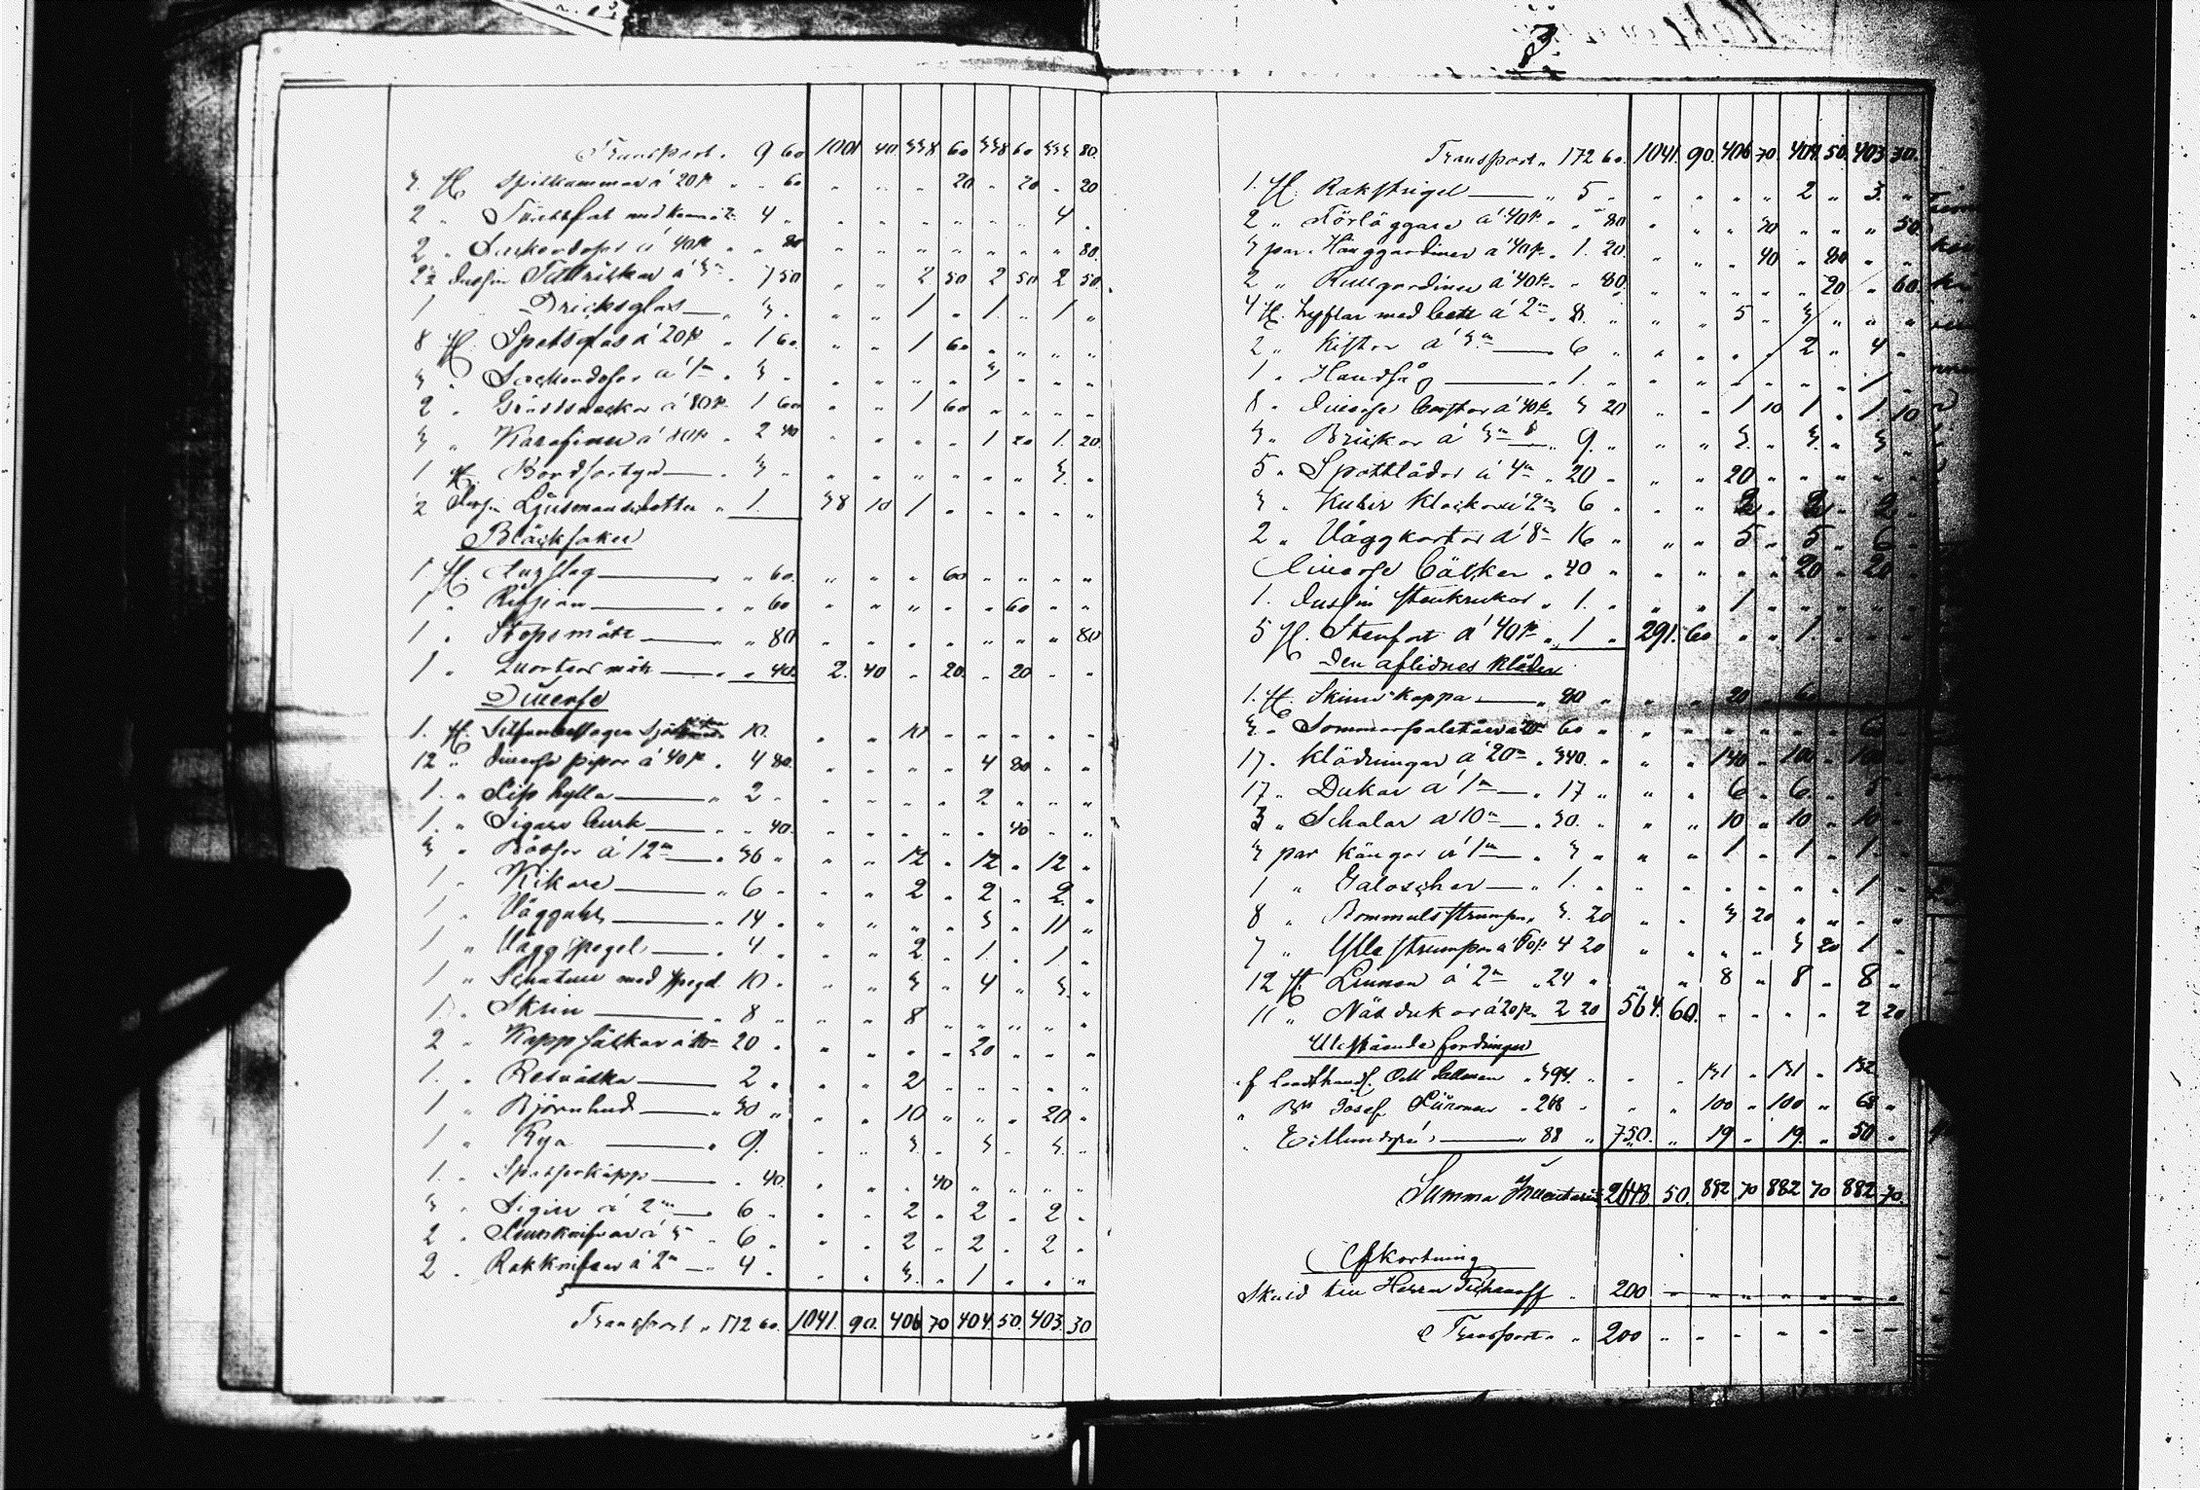 Transport. 9 60 1001 40. 338 60 338 60 333 80.
3. St. Spilkummar á 20 p. " " 60 " " " 20 " 20 " 20
2 " fat med 4 " " " " " " " 4 "
2 " Sockerdosor á 40 p. " " 80 " " " " " " " 80.
2½ dussin Tallrickar á 3 m. 7 50 " " 2 50 2 50 2 50
1 " Dricksglas " 3 " " " 1 " 1 " 1 "
8 St. Spetsglas á 20 p. " 1 60 " " 1 60 " " " "
3 " Sockerdosor á 1 m. 3 " " " " " 3 " " "
2 " Gräddsnäckor á 80 p. 1 60 " " 1 60 " " " "
3 " Karafiner á 80 p. 2 40 " " " " 1 20 1 20
1 St. Bord " 3 " " " " " " " 3 "
2 dussin Ljusmanschetter " 1. 38 10 1 " " " " "
Bläcksaker
1 St. " 60 " " " 60 " " " "
1 " " " 60 " " " " " 60 " "
1 " Stopsmått " " 80 " " " " " " " 80
1 " Quarters mått " " 40. 2. 40 " 20. " 20 " "
Diverse
1. St. 10. " " 10 " " " " "
12 " diverse pipor á 40 p. " 4 80. " " " " 4 80 " "
1. " Piphylla " 2 " " " " " 2 " " "
1. " Sigarr burk " " 40. " " " " " 40 " "
3 " Bössor á 12 m " 36 " " " 12 " 12 " 12 "
1 " Kikare " 6 " " " 2 " 2 " 2 "
1 " Väggur " 14 " " " " " 3 " 11 "
1 " Väggspegel " 4 " " " 2 " 1 " 1 "
1 " Schatull med spegel 10 " " " 3 " 4 " 3 "
1 " Skrin " 8 " " " 8 " " " " "
2 " Kappsäckar á 10 m 20 " " " " " 20 " " "
1. " Resväska " 2 " " " 2 " " " " "
1 " Björnhud " 30 " " " 10 " " " 20 "
1 " Rya " 9. " " 3 " 3 " 3 "
1. " Spatserkäpp " " 40. " " " 40 " " " "
3 " Sigill á 2 m " 6 " " " 2 " 2 " 2 "
2 " knifvar á 3 " 6 " " " 2 " 2 " 2 "
2 " Rakknifvar á 2 m " 4 " " " 3 " 1 " " "
Transport " 172 60. 1041. 90. 406 70 404. 50. 403. 30
3
Transport " 172 60. 1041. 90. 406 70. 404. 50. 403. 30.
1. St. Rakstrigel " 5 " " " " " 2 " 3 "
2 " Förläggare á 40 p. " " 80 " " " 30 " " " 50
3 par Hänggardiner á 40 p. 1. 20. " " " 40 " 80 " "
2 " Rullgardiner á 40 p. " " 80 " " " " " 20 " 60.
4 St. hyflar med bett á 2 m. 8 " " " 5 " 3 " " "
2 " Kistor á 3 m " 6 " " " " " 2 " 4 "
1 " Handsåg " 1. " " " " " " " 1 "
8 " diverse borstar á 40 p. 3 20 " " 1 10 1 " 1 10
3 " Brickor á 3 m " 9. " " 3. " 3. " 3 "
5 " Spottlådor á 4 m " 20 " " " 20 " " " " "
3 " Klockor á 2 m 6 " " " 2 " 2 " 2 "
2 " Väggkartor á 8 m 16 " " " 5 " 5 " 5 "
Diverse böcker " 40 " " " " " 20 " 20 "
1. dussin stenkrukor " 1. " " " 1 " " " " "
5 St. Stenfat á 40 p. " 1 " 291. 60 " " 1. " " "
Den aflidnes kläder
1. St. Skinnkappa " 80 " " " 20 " 60 " " "
3 " Sommarpaletåer á 20 m 60 " " " " " " " 60 "
17 " Klädningar á 20 m " 340. " " " 140 " 100 " 100 "
17 " Dukar á 1 m " 17 " " " 6 " 6 " 5 "
3 " Schalar á 10 m " 30. " " " 10 " 10 " 10 "
3 par Kängor á 1 m " 3 " " " 1 " 1 " 1 "
1 " Galoscher " 1. " " " " " " " 1 "
8 " Bommulsstrumpor " 3. 20 " " 3 20 " " " "
7 " Yllestrumpor á 60 p. 4 20 " " " " 3 20 1 "
12 St. Linnen á 2 m " 24 " " " 8 " 8 " 8 "
11 " Näsdukar á 20 p. 2 20 564. 60. " " " " 2 20
Utestående fordringar
af handl. " 394. " " " 131 " 131 " 132
" Josef " 268 " " " 100 " 100 " 68 "
" " 88 " 750. " 19 " 19 " 50 "
Summa Inventarii 2648. 50. 882 70 882 70 882 70.
Afkortning
Skuld till Herrar " 200 " " " " " " "
Transport " " 200 " " " " " " "